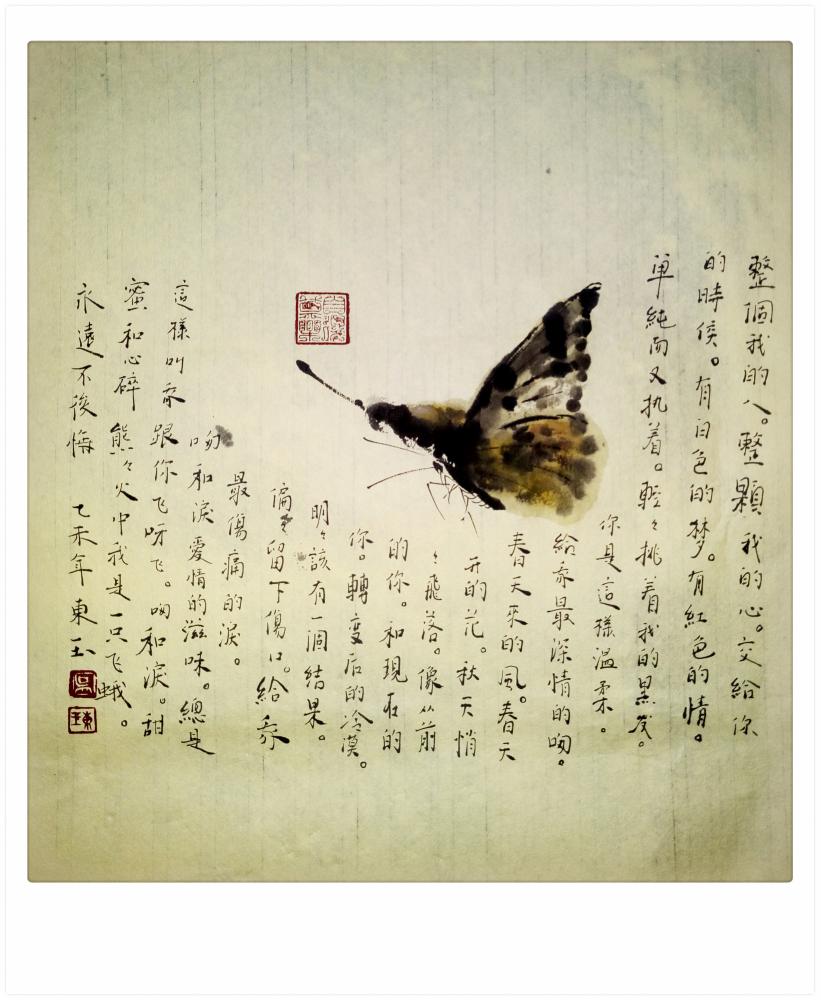 整個我的人。整顆我的心。交給你
的時候。有白色的梦。有紅色的情。
单純而又执着。輕々挑着我的黑发。
你是這樣温柔。
給我最深情的吻。
春天來的風。春天
开的花。秋天悄
々飛落。像从前
的你。和現在的
你。轉变后的冷漠。
明々該有一個結果。
偏々留下傷口。給我
最傷痛的淚。
吻和淚愛情的滋味。總是
這樣叫我跟你飞呀飞。吻和淚。甜
蜜和心碎 熊々火中我是一只飞蛾。
永遠不後悔 乙未年東玉